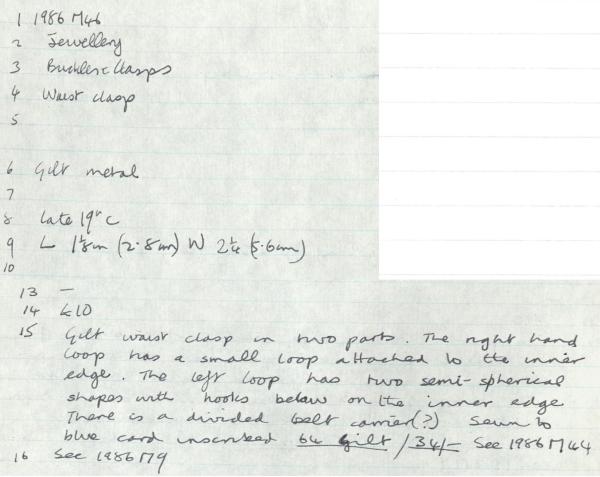 1 1986 M46
2 Jewellery
3 Buckles & Clasps
4 Waist clasp
5
6 Gilt metal
7
8 Late 19th c
9 L 1⅛in (2.8cm) W 2¼ (5.6cm)
10
13 –
14 £10
15 Gilt waist clasp in two parts. The right hand
loop has a small loop attached to the inner
edge. The left loop has two semi-spherical
shapes with hooks below on the inner edge
There is a divided belt carrier(?) Sewn to
blue card inscribed 64 Gilt / 34/- See 1986 M44
16 See 1986 M9